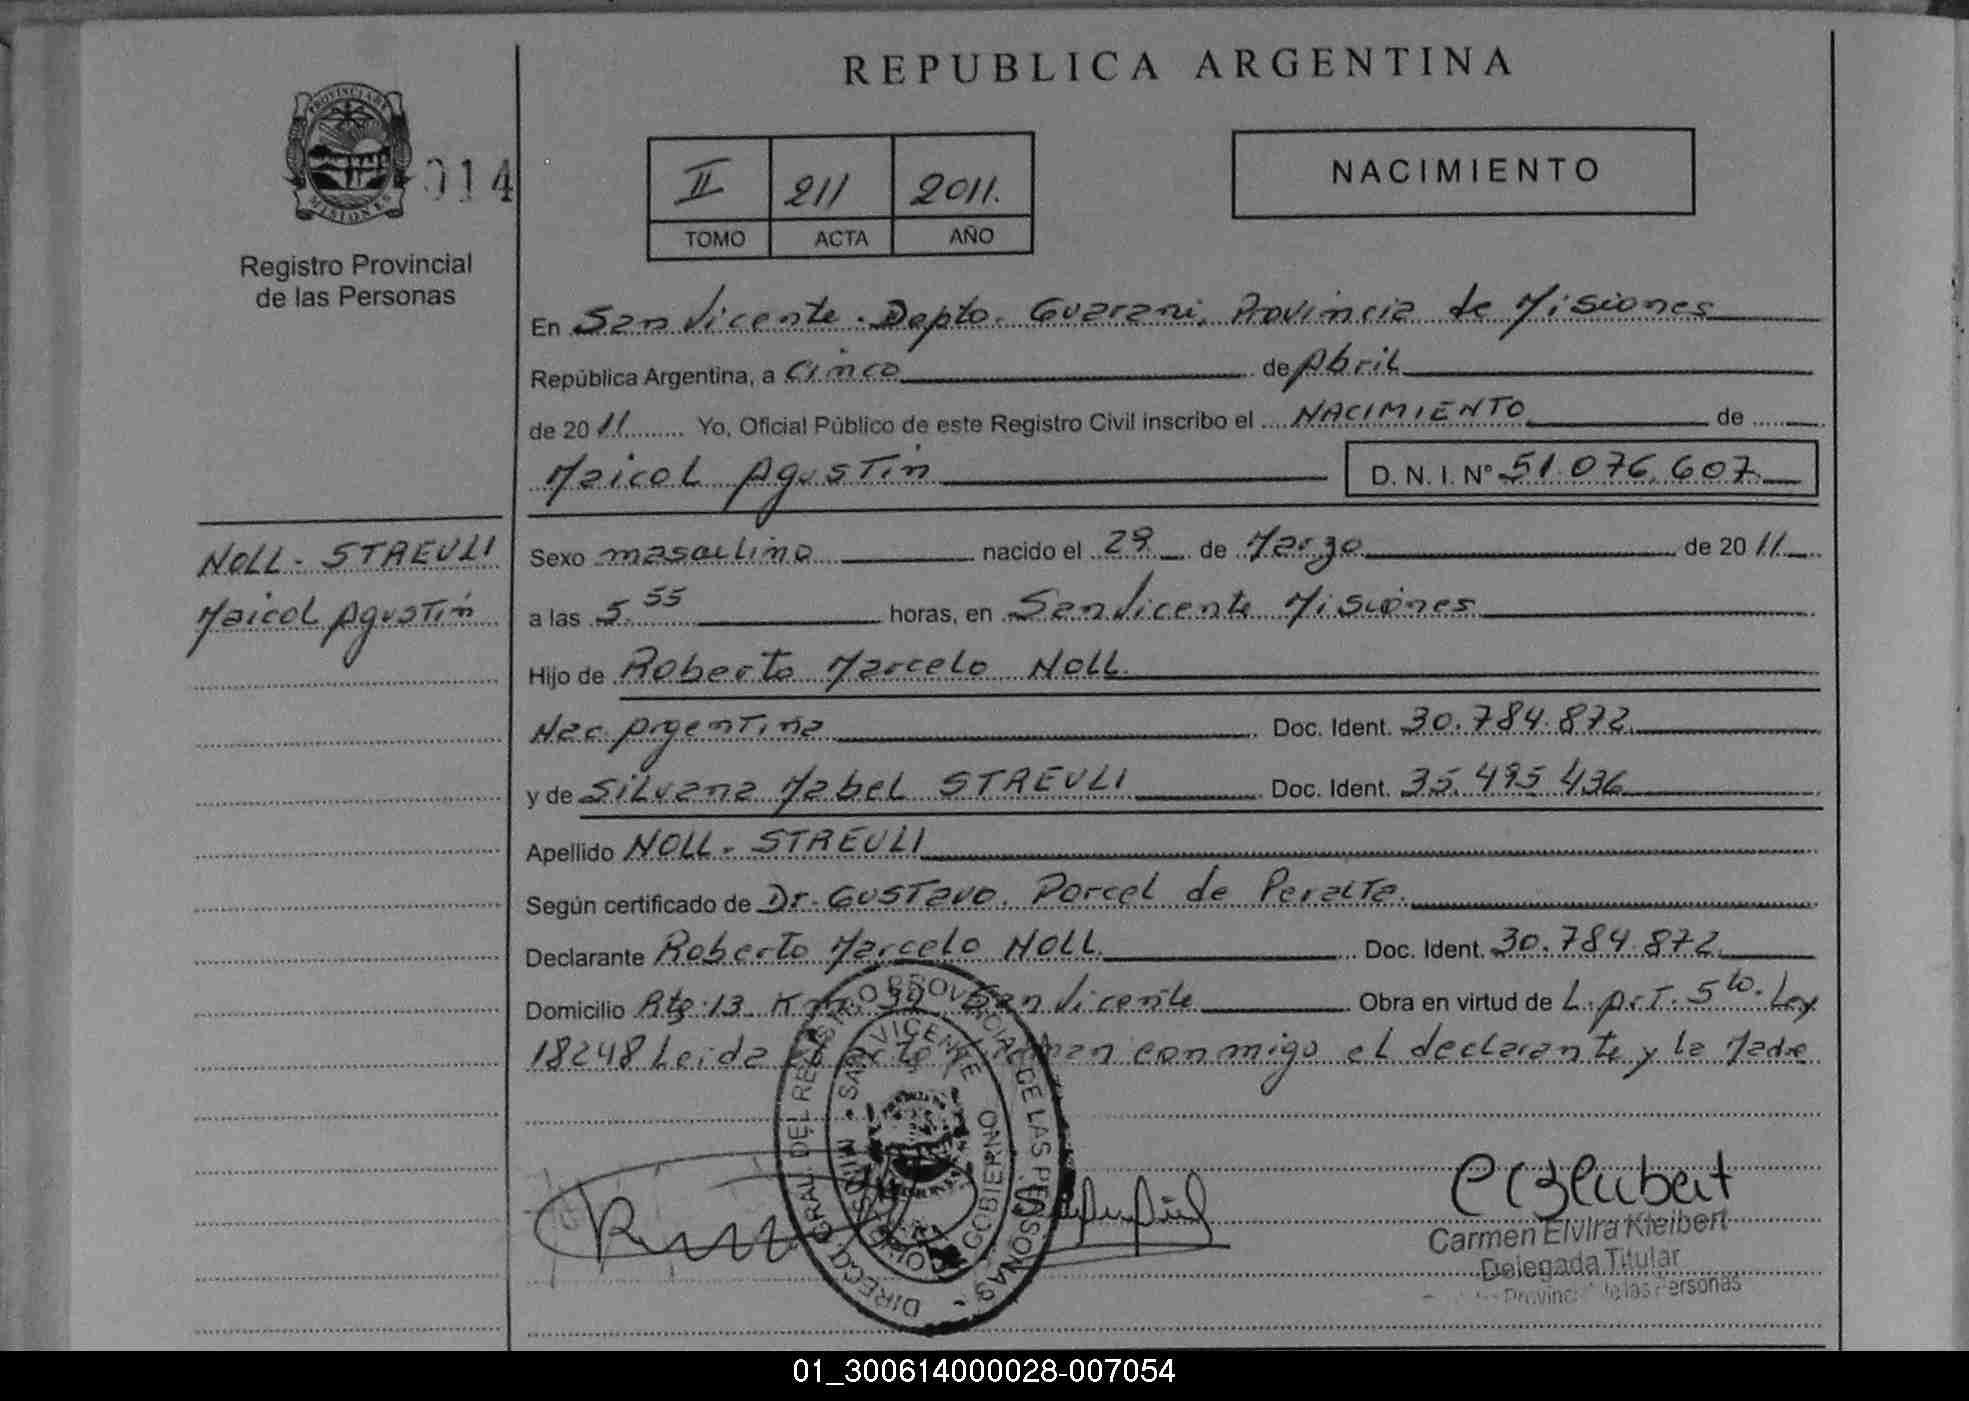 REPUBLICA ARGENTINA
PROVINCIA DE
MISIONES
014
Registro Provincial
de las Personas
II 211 2011.
TOMO ACTA AÑO
NACIMIENTO
En San Vicente. Depto. Guarani, Provincia de Misiones
República Argentina, a Cinco de Abril
de 2011 Yo, Oficial Público de este Registro Civil inscribo el NACIMIENTO de
Maicol Agustin D. N. I. N° 51.076.607
NOLL - STREULI
Maicol Agustin
Sexo masculino nacido el 29 de Marzo de 2011
a las 5.55 horas, en San Vicente Misiones
Hijo de Roberto Marcelo NOLL.
Nac. Argentina Doc. Ident. 30.784.872
y de Silvana Mabel STREULI Doc. Ident. 35.495.436
Apellido NOLL - STREULI
Según certificado de Dr. Gustavo. Porcel de Peralta.
Declarante Roberto Marcelo NOLL Doc. Ident. 30.784.872
Domicilio Rta 13 Km. San Vicente Obra en virtud de L. Art. 5to. Ley
18248 Leida el conmigo el declarante y la Madre
DIRECC. GRAL. DEL REGISTRO PROVINCIAL DE LAS PERSONAS
SAN VICENTE
GOBIERNO
Carmen Elvira Kleibert
Delegada Titular
de las Personas
01_300614000028-007054